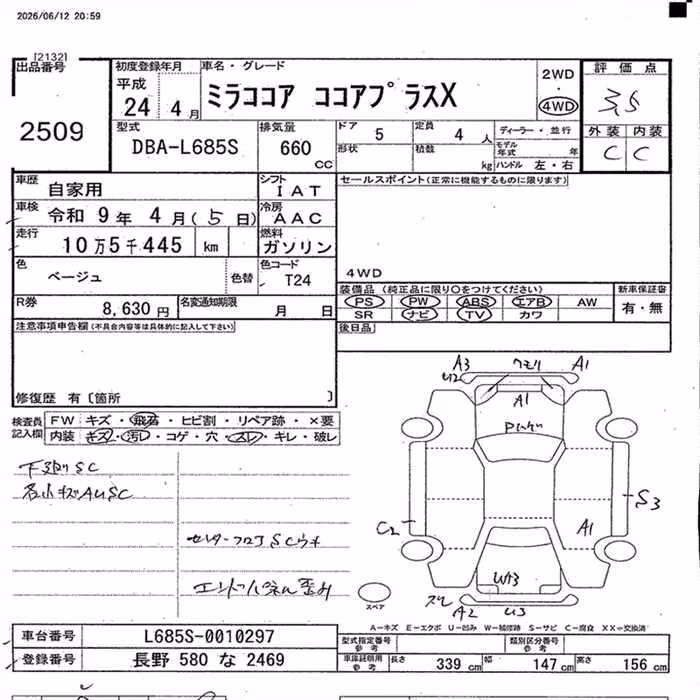 2026/06/12 20:59
[2132]
出品番号
2509
初度登録年月
平成
24 4月
車名・グレード
ミラココア ココアプラスX
2WD
4WD
評価点
3.5
外装 内装
C C
型式
DBA-L685S
排気量
660
CC
ドア 5
定員 4 人
形状
積数
kg
ディーラー・並行
モデル年式 年
ハンドル 左・右
車歴
自家用
シフト
IAT
車検
令和 9年 4月(5日)
冷房
AAC
走行
10万5千445 km
燃料
ガソリン
色
ベージュ
色替
色コード
T24
R券
8,630円
名変通知期限
月 日
セールスポイント(正常に機能するものに限ります)
4WD
装備品(純正品に限り○をつけてください)
PS PW ABS エアB AW
SR ナビ TV カワ
新車保証書
有・無
後日品
注意事項申告欄(不具合内容等は具体的に記入して下さい)
修復歴 有〔箇所 〕
検査員
記入欄
FW キズ・飛石・ヒビ割・リペア跡・×要
内装 キズ・汚レ・コゲ・穴・スレ・キレ・破レ
下廻りSC
各小キズAUSC
センターフロアSCウキ
エンドパネル歪み
A3
U2
A1
A1
C2
S3
A1
W13
A2
U3
スペア
A-キズ E-エクボ U-凹み W-補修跡 S-サビ C-腐食 XX-交換済
車台番号
L685S-0010297
登録番号
長野 580 な 2469
型式指定番号
参考
類別区分番号
参考
車庫証明用
参考
長さ 339 cm 幅 147 cm 高さ 156 cm